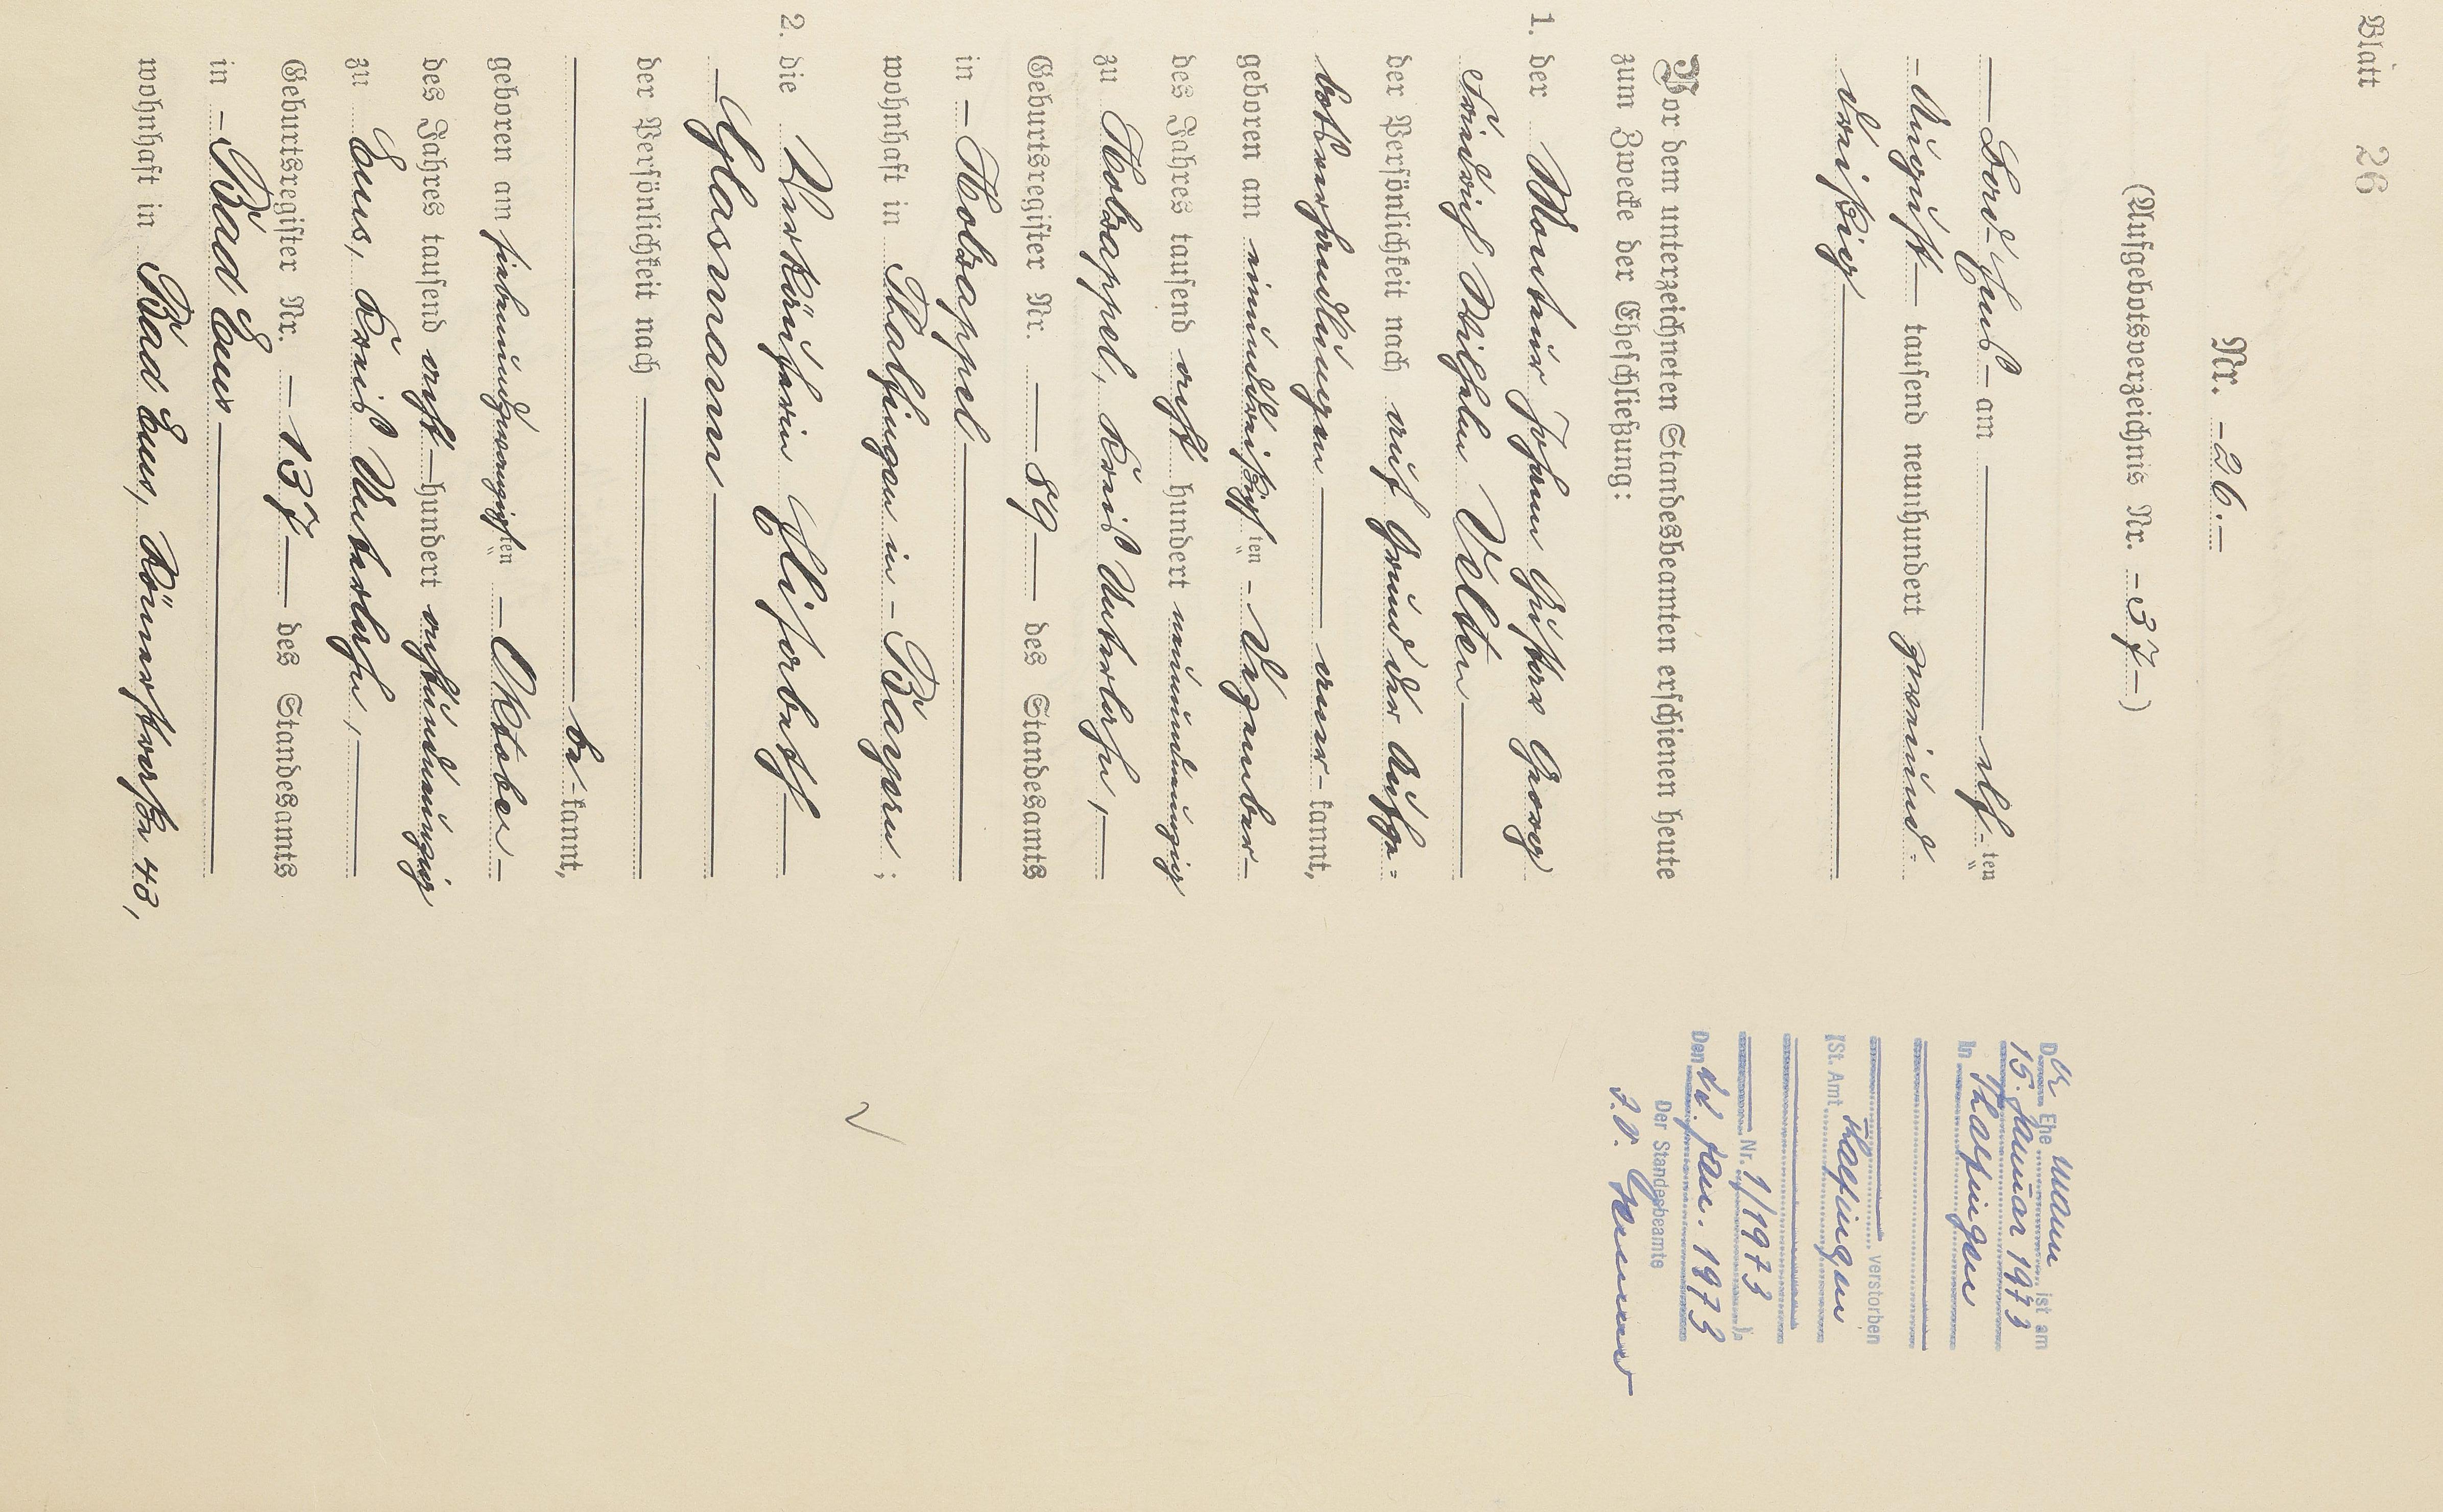 Blatt 26
Nr. -26.-
(Aufgebotsverzeichnis Nr. -37-)
Bad-Ems - am — elf-ten
- August — tausend neunhundert zweiund-
dreißig —
Vor dem unterzeichneten Standesbeamten erschienen heute
zum Zwecke der Eheschließung:
1. der Monteur Johann Gustav Georg
Friedrich Wilhelm Velten —
der Persönlichkeit nach auf Grund der Aufge=
botsverhandlungen — aner-kannt,
geboren am einunddreißigsten ten - Dezember-
des Jahres tausend acht hundert neunundneunzig
zu Holzappel, Kreis Unterlahn, —
Geburtsregister Nr. — 89 — des Standesamts
in - Holzappel —
wohnhaft in Thalfingen in - Bayern ;
2. die Verkäuferin Elisabeth —
- Glasmann —
der Persönlichkeit nach —
— be-kannt,
geboren am siebenundzwanzigsten ten - Oktober -
des Jahres tausend acht-hundert achtundneunzig
zu Ems, Kreis Unterlahn, —
Geburtsregister Nr. - 137 — des Standesamts
in - Bad Ems —
wohnhaft in Bad Ems, Römerstraße 43,
Der Ehe mann ist am
15. Januar 1973
in Thalfingen
verstorben
(St. Amt Thalfingen
Nr. 1/1973 ).
Den Jan. 1973
Der Standesbeamte
I.V.